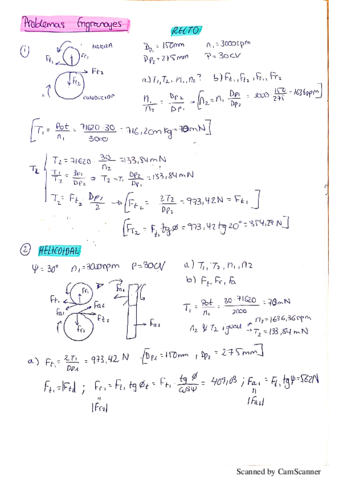 Problemas Engranajes
RECTO
①
MOTORA
Fr₁
Ft₁
Ft₂
Fr₂
CONDUCIDA
Dp₁ = 150mm n₁ = 3000rpm
Dp₂ = 275mm P = 30CV
a) T₁, T₂, n₁, n₂? b) Ft₁, Ft₂, Fr₁, Fr₂
n₁/n₂ = Dp₂/Dp₁ → [n₂ = n₁ Dp₁/Dp₂ = 3000 · 150/275 = 1636rpm
[T₁ = Pot/n₁ = 71620 · 30/3000 = 716,20cmKg = 70mN]
T₂
T₂ = 71620 · 30/n₂ = 133,84mN
T₁/T₂ = Dp₁/Dp₂ → T₂ = T₁ Dp₂/Dp₁ = 133,84mN
T₂ = Ft₂ Dp₂/2 → [Ft₂ = 2T₂/Dp₂ = 973,42N = Ft₁]
[Fr₂ = Ft tgϕ = 973,42 tg20° = 354,29N]
② HELICOIDAL
Ψ = 30° n₁ = 3000rpm P = 30CV
a) T₁, T₂, n₁, n₂
b) Ft, Fr, Fa
T₁ = Pot/n₁ = 30 · 71620/3000 = 70mN
n₂ y T₂ igual
n₂ = 1636,36rpm
T₂ = 133,84mN
a) Ft₁ = 2T₁/Dp₁ = 973,42N [Dp₁ = 150mm, Dp₂ = 275mm]
Ft₁ = |Ft₂| ; Fr₁ = Ft₁ tgϕt = Ft₁ tgϕ/cosΨ = 409,03 ; Fa₁ = Ft tgΨ = 562N
|Fr₂|
|Fa₂|
Scanned by CamScanner